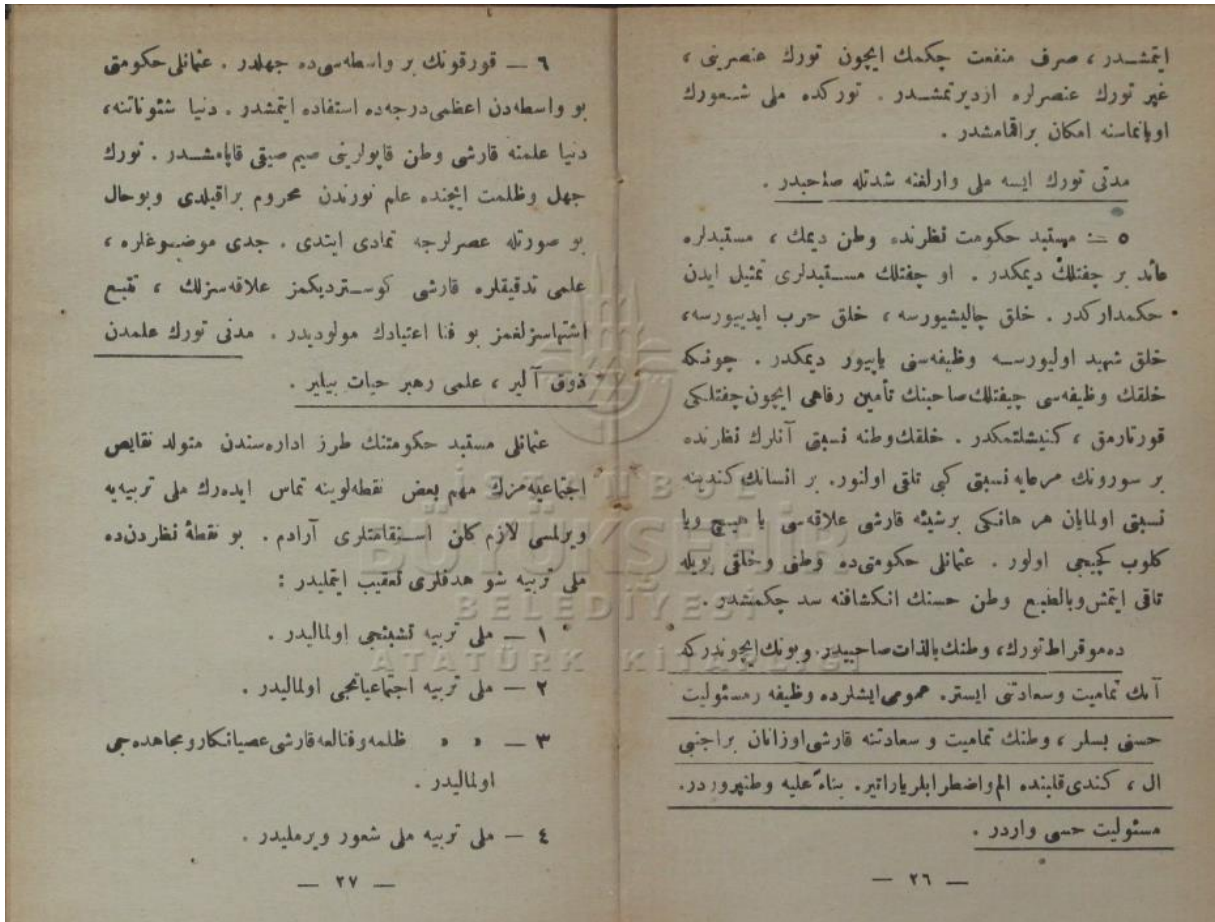 ایتمشدر ، صرف منفعت چکمك ایچون تورك عنصرینی ،
غیر تورك عنصرلره ازدیرتمشدر . تورکده ملی شعورك
اویانماسنه امکان براقمامشدر .
مدنی تورك ایسه ملی وارلغنه شدتله صاحبدر .
٥ — مستبد حکومت نظرنده وطن دیمك ، مستبدلره
عائد بر چفتلك دیمکدر . او چفتلك مستبدلری تمثیل ایدن
حکمدارکدر . خلق چالیشیورسه ، خلق حرب ایدییورسه،
خلق شهید اولیورسه وظیفه‌سنی یاپیور دیمکدر . چونکه
خلقك وظیفه‌سی چیفتلك صاحبنك تأمین رفاهی ایچون چفتلکی
قورتارمق ، کنیشلتمکدر . خلقك وطنه نسبتی آنلرك نظرنده
بر سورونك مرعایه نسبتی کبی تلقی اولنور. بر انسانك کندینه
نسبتی اولمایان هر هانکی برشیئه قارشی علاقه‌سی یا هیچ ویا
کلوب کچیجی اولور . عثمانلی حکومتی‌ده وطنی وخلقی بویله
تلقی ایتمش وبالطبع وطن حسنك انکشافنه سد چکمشدر .
ده‌موقراط تورك، وطنك بالذات صاحبیدر. وبونك ایچوندرکه
آنك تمامیت وسعادتنی ایستر. عمومی ایشلرده وظیفه ومسئولیت
حسنی بسلر ، وطنك تمامیت و سعادتنه قارشی اوزانان بر اجنبی
ال ، کندی قلبنده الم واضطرابلر یاراتیر. بناءً علیه وطنپروردر.
مسئولیت حسی واردر .
— ٢٦ —
٦ — قورقونك بر واسطه‌سی‌ده جهلدر . عثمانلی حکومتی
بو واسطه‌دن اعظمی درجه‌ده استفاده ایتمشدر . دنیا شئوناتنه،
دنیا علمنه قارشی وطن قاپولرینی صیم صیقی قاپامشدر . تورك
جهل وظلمت ایچنده علم نورندن محروم براقیلدی وبوحال
بو صورتله عصرلرجه تمادی ایتدی . جدی موضوعلره ،
علمی تدقیقلره قارشی کوستردیکمز علاقه‌سزلك ، تتبع
اشتهاسزلغمز بو فنا اعتیادك مولودیدر . مدنی تورك علمدن
ذوق آلیر ، علمی رهبر حیات بیلیر .
عثمانلی مستبد حکومتنك طرز اداره‌سندن متولد نقایص
اجتماعیه‌مزك مهم بعض نقطه‌لرینه تماس ایده‌رك ملی تربیه‌یه
ویرلمسی لازم کلن استقامتلری آرادم . بو نقطهٔ نظردن‌ده
ملی تربیه شو هدفلری تعقیب ایتملیدر :
١ — ملی تربیه تشبثجی اولمالیدر .
٢ — ملی تربیه اجتماعیاتجی اولمالیدر .
٣ — « « ظلمه وفنالغه قارشی عصیانکار ومجاهده‌جی
اولمالیدر .
٤ — ملی تربیه ملی شعور ویرملیدر .
— ٢٧ —
İSTANBUL
BÜYÜKŞEHİR
BELEDİYESİ
ATATÜRK KİTAPLIĞI